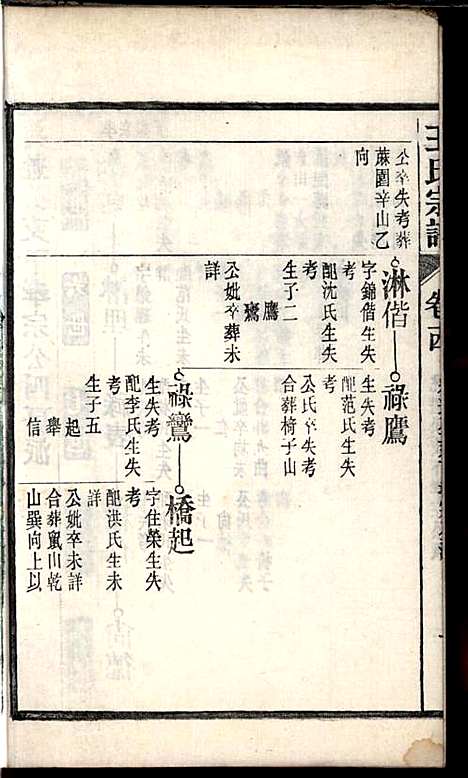 王氏宗譜
卷十四
公卒失考葬
蔴園辛山乙
向
淋偕
字錦偕生失
考
配沈氏生失
考
生子二
鷹
鸞
公妣卒葬未
詳
祿鷹
生失考
配范氏生失
考
公氏卒失考
合葬椅子山
祿鸞
生失考
配李氏生失
考
生子五
起
舉
信
橋起
字住榮生失
考
配洪氏生未
詳
公妣卒未詳
合葬鼠山乾
山巽向上以